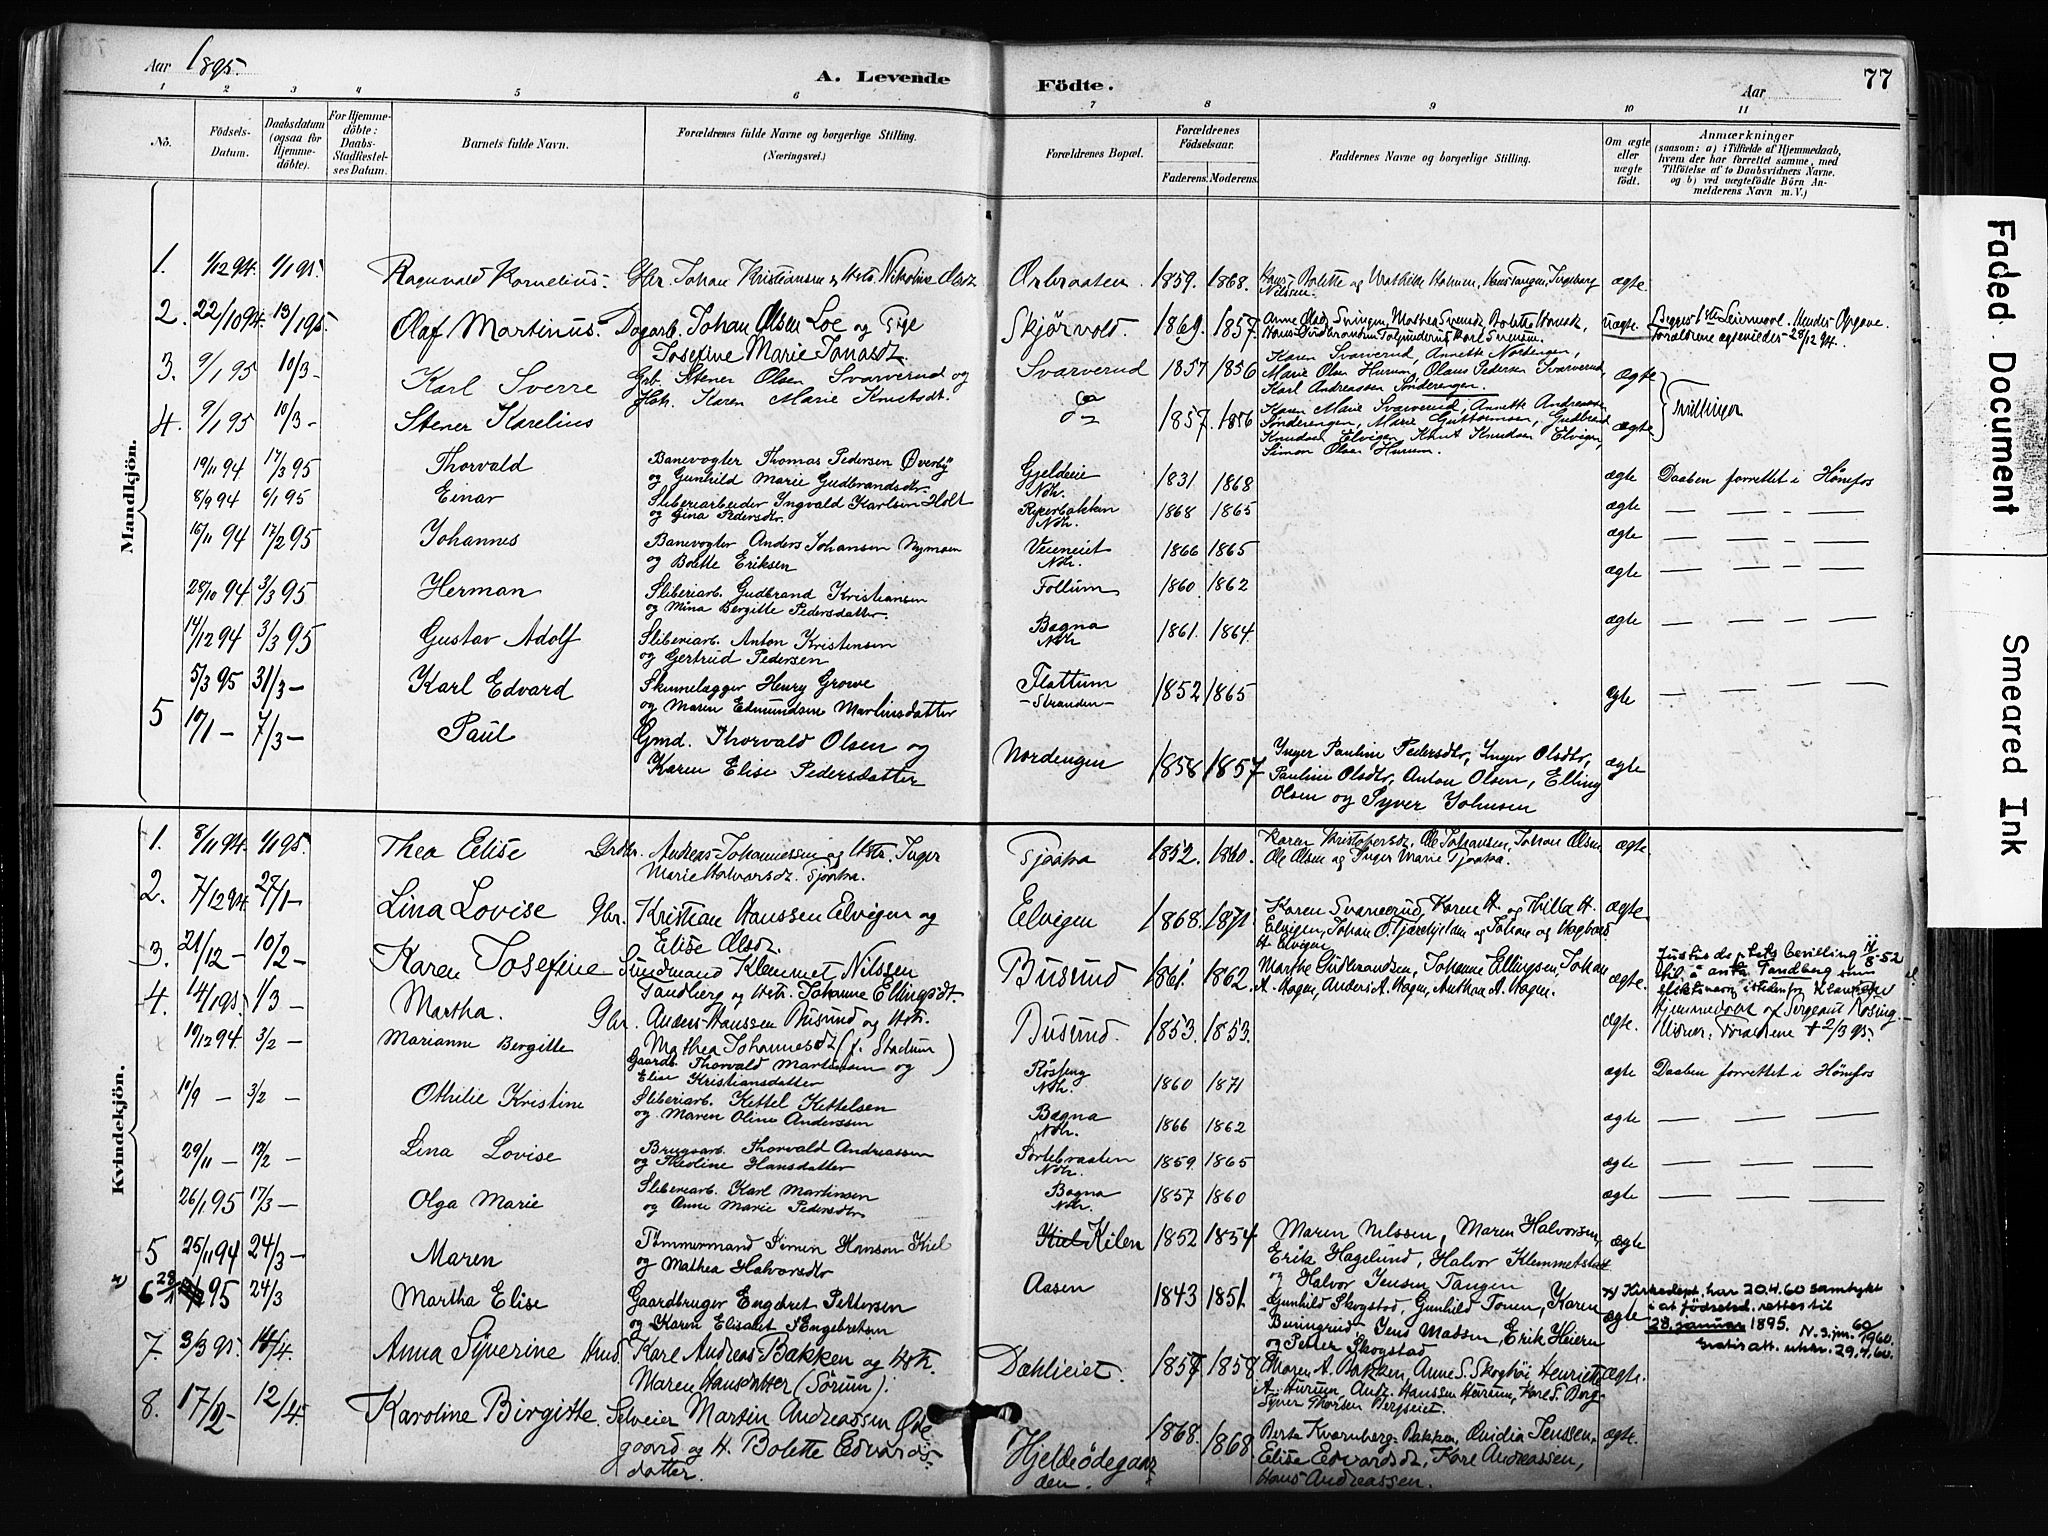 Aar 1895.
A. Levende
Födte.
Aar
77
1 2 3 4 5 6 7 8 9 10 11
No.
Födsels-
Datum.
Daabsdatum
(ogsaa for
Hjemme-
döbte).
For Hjemme-
döbte:
Daabs-
Stadfæstel-
ses Datum.
Barnets fulde Navn.
Forældrenes fulde Navne og borgerlige Stilling.
(Næringsvei.)
Forældrenes Bopæl.
Forældrenes
Födselsaar.
Faderens. Moderens.
Faddernes Navne og borgerlige Stilling.
Om ægte
eller
uægte
födt.
Anmærkninger
(saasom: a) i Tilfælde af Hjemmedaab,
hvem der har forrettet samme, med
Tilföielse af to Daabsvidners Navne,
og b) ved uægtefödte Börn An-
melderens Navn m. V.)
Mandkjön.
1. 1/12 94. 1/1 95. Ragnvald Kornelius. Gbr. Johan Kristiansen Nikoline Olsdt. 1859. 1868. ægte.
2. 22/10 94. 13/1 95. Olaf Martinus. Dagarb. Johan Olsen Loe og Pige
Josefine Marie Jonasdt. Skjørvold. 1869. 1857. uægte.
3. 9/1 95 10/3 – Karl Sverre Grb. Stener Olsen Svarverud og
Karen Marie Knutsdt. Svarverud 1857 1856 Karen Svarverud, Annette Nordengen,
Marie Olsen Hurum, Olaus Pedersen Svarverud,
Karl Andreassen Sønderengen. ægte
4. 9/1 95 10/3 – Stener Karelius 1857. 1856 Karen Marie Svarverud, Annette Andreassen
Sønderengen, Marie Guttormsen, Gudbrand
Knudsen Elvigen, Knut Knudsen Elvigen,
Simon Olsen Hurum. ægte Tvillinger
19/11 94 17/3 95 Thorvald Banevogter Thomas Pedersen Øverby
og Gunhild Marie Gudbrandsdtr. Gjeldeie
Ndr. 1831 1868 ægte Daaben forrettet i Hønefos
8/9 94 6/1 95 Einar Sliberiarbeider Ingvald Karlsen Holt
og Gina Pedersdtr. Ndr. 1868 1865 ægte — — - —
16/11 94 17/2 95 Johannes Banevogter Anders Johansen Nymoen
og Bolette Eriksen Veieneiet
Ndr. 1866 1865 ægte — — —
28/10 94 3/3 95 Herman Sliberiarb. Gudbrand Kristiansen
og Mina Bergitte Pedersdatter. Follum 1860 1862 ægte — — —
14/12 94 3/3 95 Gustav Adolf Sliberiarb. Anton Kristensen
og Gertrud Pedersen Bægna
Ndr 1861. 1864. ægte — — —
5/3 95 31/3 – Karl Edvard Skinnelægger Henry Growe
og Maren Edmundsen Martinsdatter Flattum
– Stranden – 1852 1865 ægte — — —
5 10/1 – 7/3 – Paul Gmd. Thorvald Olsen og
Karen Elise Pedersdatter Nordengen 1858 1857 Inger Pauline Pedersdtr, Inger Olsdtr,
Pauline Olsdtr, Anton Olsen, Elling
Olsen og Syver Johnsen ægte
Kvindekjön.
1. 8/11 94. 1/1 95. Thea Elise Andreas Johannessen og Inger
Marie Halvorsdt. Tjoapa. Tjoapa 1852. 1860. Karen Kristofersdt, Ole Johansen, Johan Olsen
Ole Olsen og Inger Marie Tjoapa. ægte.
2. 7/12 94 27/1 – Lina Lovise Gbr. Kristian Hanssen Elvigen og
Elise Olsdt. Elvigen 1868. 1871. ægte
3. 21/12 – 10/2 – Karen Josefine Klemmet Nilssen
Tandberg og Hstr. Johanne Ellingsdt. Busund 1861. 1862. Marthe Gudbrandsen, Johanne Ellingsen, Johan
A. Hagen, Anders A. Hagen, Anthon A. Hagen. ægte. Justisdeptets bevilling
til å anta Tandberg som
slektsnavn
4. 14/1 95. 1/3 – Martha. Gbr. Anders Hanssen Busund og Hstr.
Mathea Johannesdt. (f. Stadum) Busund. 1853. 1853. ægte. Hjemmedøbt af Sergeant Rosing
Vidner: Forældrene † 2/3 95.
10/12 94. 3/2 – Marianne Bergitte Gaardb. Thorvald Martinsen og
Elise Kristiansdatter Ndr. 1860 1871 ægte Daaben forrettet i Hønefos
10/9 – 3/2 – Othilie Kristine Sliberiarb. Kettel Kettelsen
og Maren Oline Anderssen Bægna
Ndr. 1866 1862 ægte — — —
29/11 – 17/2 – Lina Lovise Brugsarb. Thorvald Andreassen
og Theoline Hansdatter Sortebraaten
Ndr. 1859. 1865 ægte — — —
26/1 95 17/3 – Olga Marie Sliberiarb. Karl Martinsen
og Anne Marie Pedersdtr Bægna
Ndr. 1857 1860 ægte — — —
5 25/11 94 24/3 – Maren Tømmermand Simen Hansen Kiel
og Mathea Halvorsdtr Kiel Kilen 1852 1854 Maren Nilssen, Maren Halvorsen,
Erik Hagelund, Halvor Klemmetsen
og Halvor Jensen Tangen ægte
x) 6 28/1 95 24/3 Martha Elise Gaardbruger Engebret Pettersen
og Karen Elisabet Engebretsen Aasen 1843 1851. Gunhild Skogstad, Gunhild Tomen, Karen
Beningrud, Jens Madsen, Erik Heieren
og Petter Skogstad ægte x) Kirkedept. har 20.4.60 samtykt
i at fødselsd. rettes til
28. januar 1895. N.s.jnr. 60/1960.
Gratis att. utstr. 29.4.60.
7. 3/3 95. 14/4. Anna Syverine Hmd. Karl Andreas Bakken og Hstr.
Maren Hansdatter (Sørum). Dæhlieiet. 1857 1858 Maren A. Bakken, Anne S. Skoghöi, Henriette
A. Hurum, Andr. Hanssen Hurum, Karl S. Berg
ægte.
8. 17/2 – 12/4 Karoline Birgitte. Selveier Martin Andreassen Øde
gaard og H. Bolette Edvards
datter. Hjeldeödegaar
den. 1868. 1868 Berte Kvernberg-Bakken, Ovidia Jenssen,
Elise Edvardsdt, Karl Andreassen,
Hans Andreassen. ægte.
Faded Document
Smeared Ink